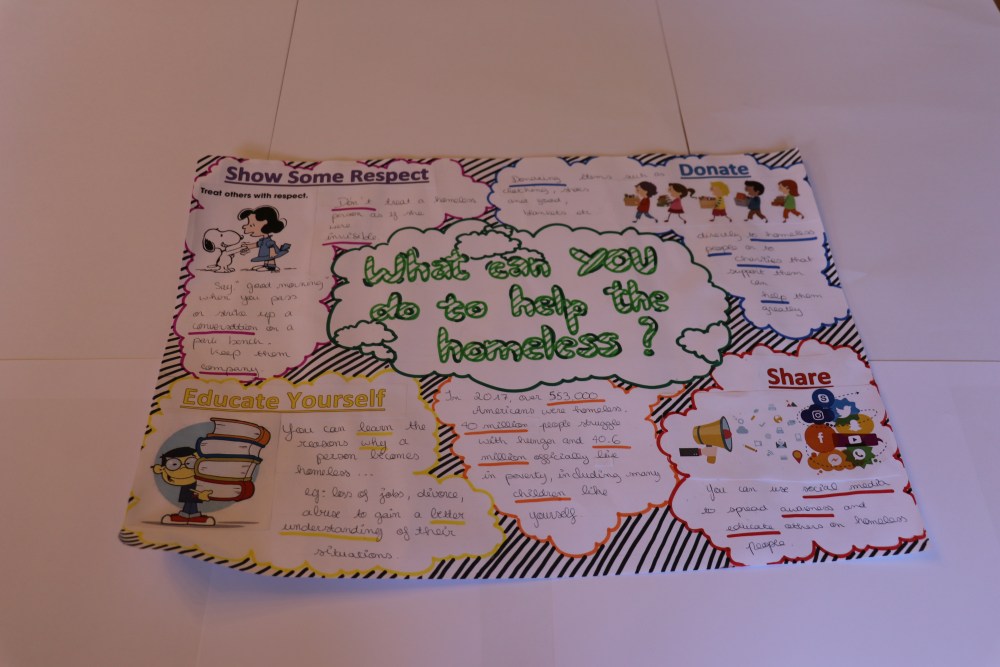 What can YOU
do to help the
homeless ?
Show Some Respect
Treat others with respect.
Don't treat a homeless
person as if the
are
invisible
Say "good morning"
when you pass
or strike up a
conversation on a
park bench.
Keep them
company
Donate
Donating items such as
clothing, shoes
and food,
blankets etc
directly to homeless
people or to
charities that
support them
can
help them
greatly
Educate Yourself
You can learn the
reasons why a
person becomes
homeless ...
eg: loss of jobs, divorce,
abuse to gain a better
understanding of their
situations
In 2017, over 553.000
Americans were homeless.
40 million people struggle
with hunger and 40.6
million officially live
in poverty, including many
children like
yourself.
Share
You can use social media
to spread awareness and
educate others on homeless
people.